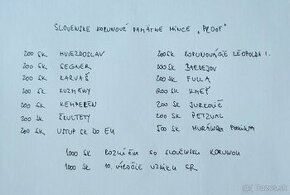 SLOVENSKÉ KORUNOVÉ PAMÄTNÉ MINCE "PROOF"
200 SK HVIEZDOSLAV
200 SK SEGNER
200 SK KARVAŠ
200 SK KUZMÁNY
200 SK KEMPELEN
200 SK ŠKULTÉTY
200 SK VSTUP SR DO EU
200 SK KORUNOVÁCIE LEOPOLDA I.
SK BARDEJOV
200 SK FULLA
200 SK KMEŤ
200 SK JURKOVIČ
200 SK PETZVAL
500 SK MURÁNSKA PLANINA
1000 SK ROZLÚČKA SO SLOVENSKOU KORUNOU
1000 SK 10. VÝROČIE VZNIKU SR